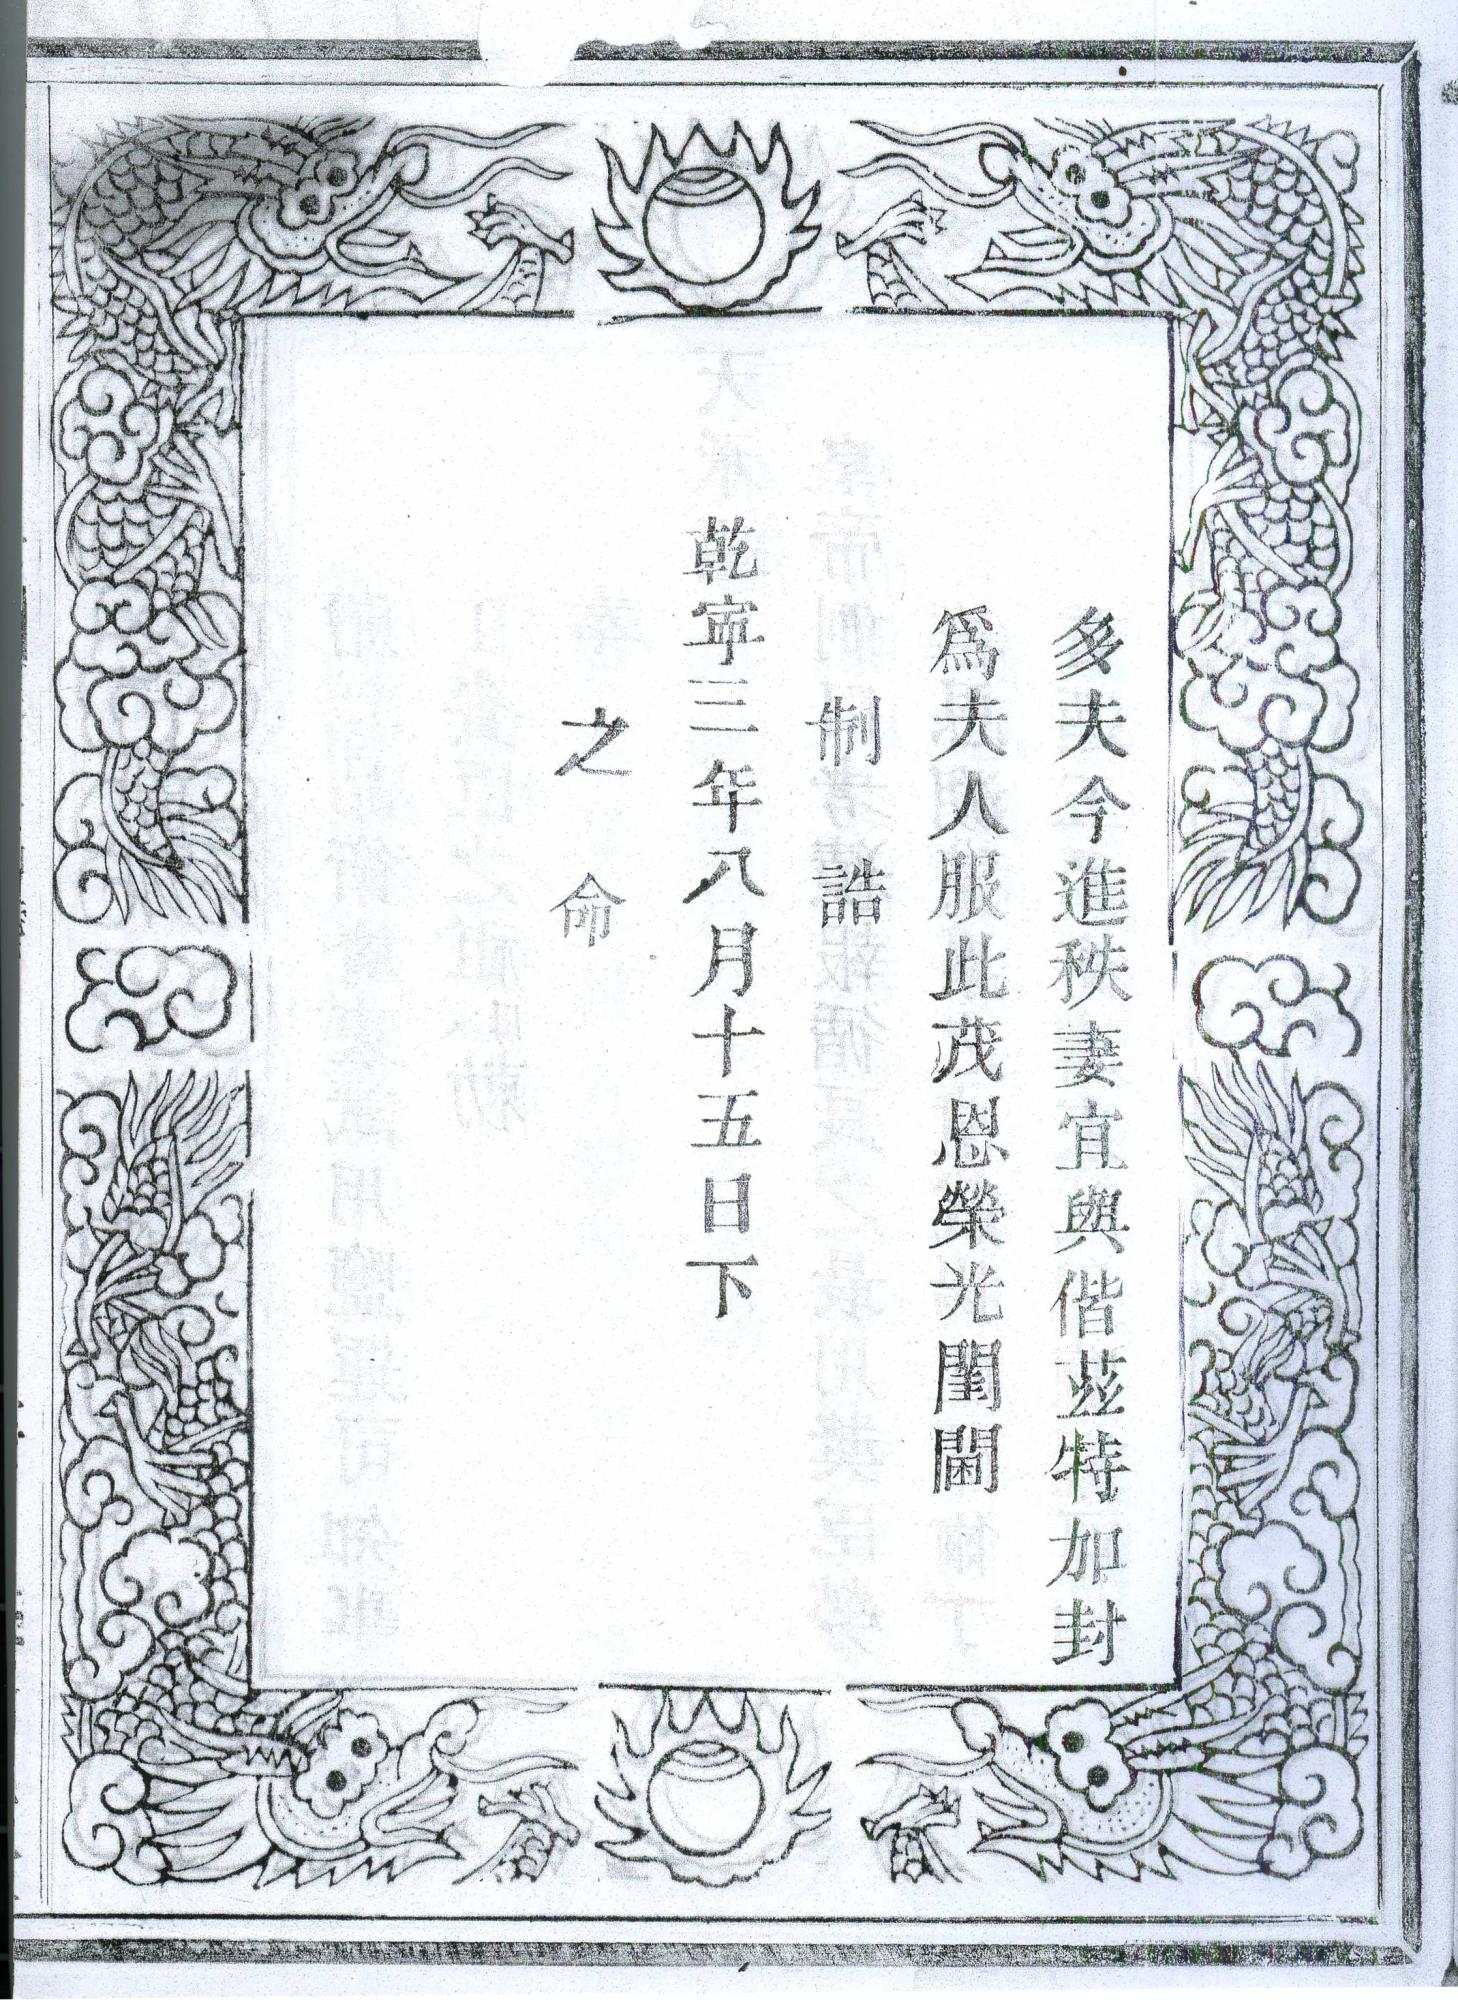 多夫今進秩妻宜與偕茲特加封
爲夫人服此茂恩榮光閨閫
制誥
乾寧三年八月十五日下
之命